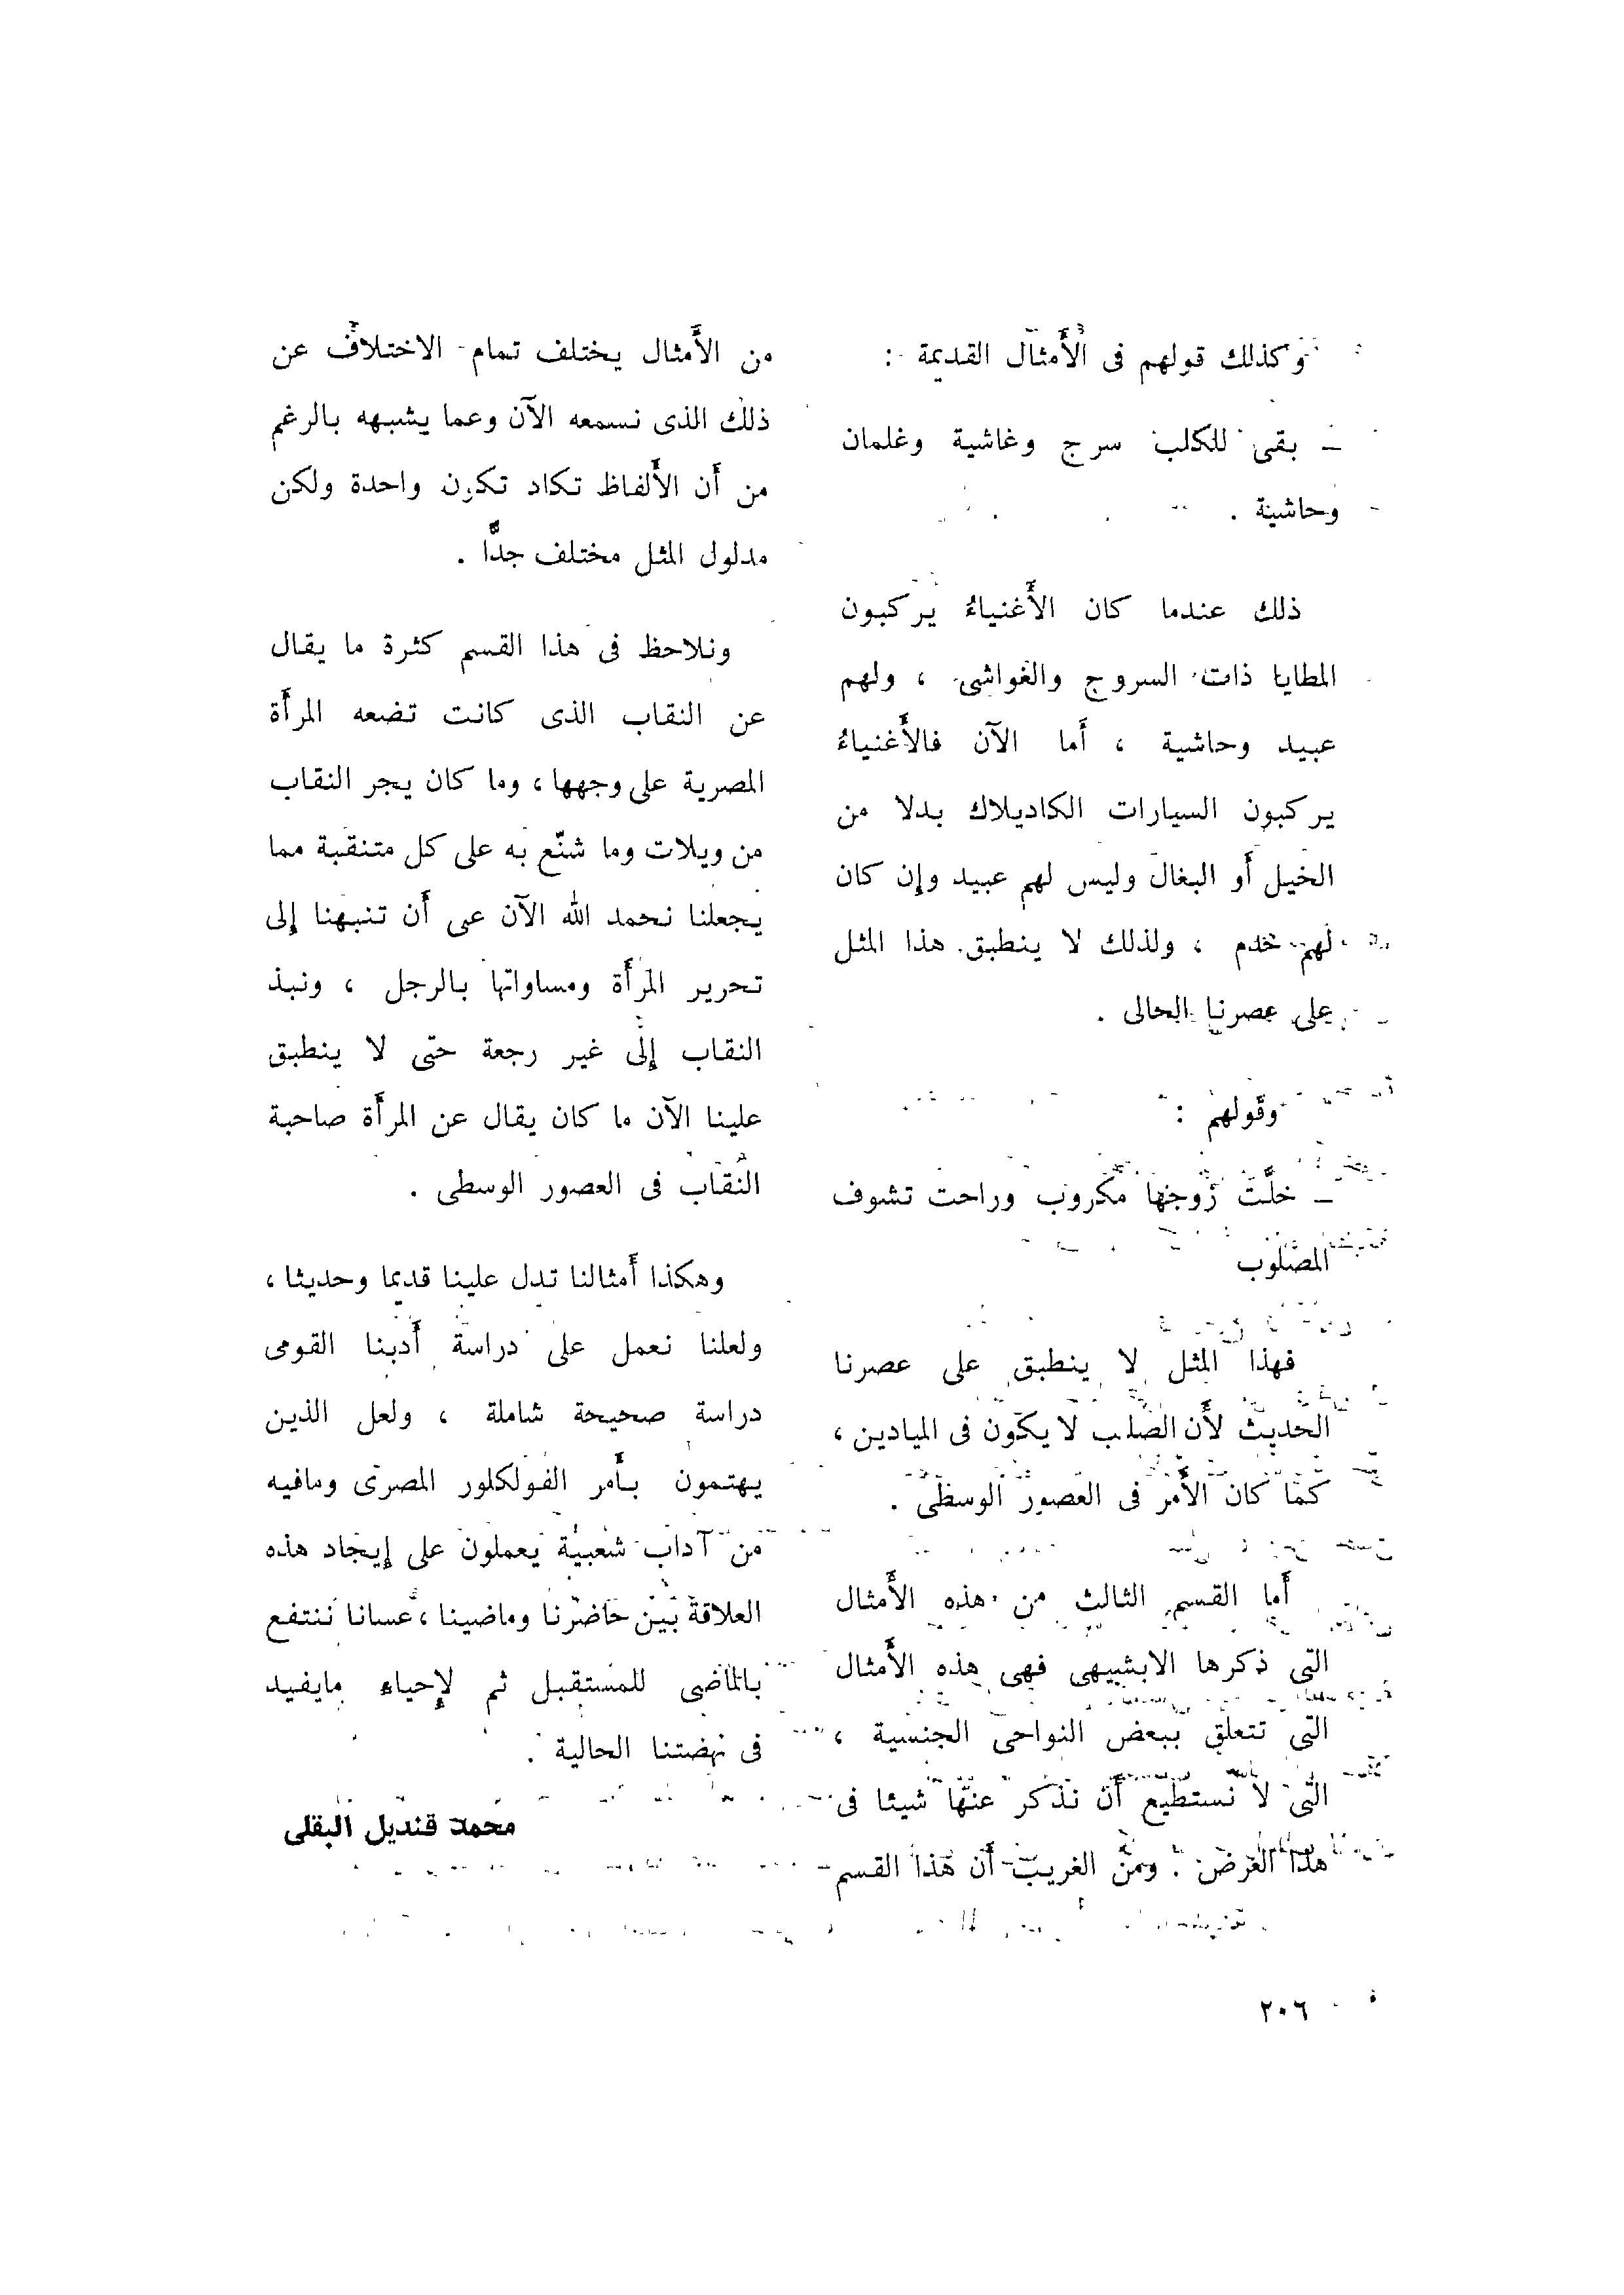 وكذلك قولهم فى الأَمثال القديمة :
ـ بقى للكلب سرج وغاشية وغلمان
وحاشية .
ذلك عندما كان الأَغنياءُ يركبون
المطايا ذات السروج والغواشى ، ولهم
عبيد وحاشية ، أَما الآن فالأَغنياءُ
يركبون السيارات الكاديلاك بدلا من
الخيل أَو البغال وليس لهم عبيد وإن كان
لهم خدم ، ولذلك لا ينطبق هذا المثل
على عصرنا الحالى .
وقولهم :
ـ خلَّت زوجها مكروب وراحت تشوف
المصلوب
فهذا المثل لا ينطبق على عصرنا
الحديث لأَن الصلب لا يكون فى الميادين ،
كما كان الأَمر فى العصور الوسطى .
أَما القسم الثالث من هذه الأَمثال
التى ذكرها الابشيهى فهى هذه الأَمثال
التى تتعلق ببعض النواحى الجنسية ،
التى لا نستطيع أَن نذكر عنها شيئا فى
هذا الغرض . ومن الغريب أَن هذا القسم
من الأَمثال يختلف تمام الاختلاف عن
ذلك الذى نسمعه الآن وعما يشبهه بالرغم
من أَن الأَلفاظ تكاد تكون واحدة ولكن
مدلول المثل مختلف جدًّا .
ونلاحظ فى هذا القسم كثرة ما يقال
عن النقاب الذى كانت تضعه المرأَة
المصرية على وجهها ، وما كان يجر النقاب
من ويلات وما شنّع به على كل متنقبة مما
يجعلنا نحمد الله الآن عى أَن تنبهنا إلى
تحرير المرأَة ومساواتها بالرجل ، ونبذ
النقاب إلى غير رجعة حتى لا ينطبق
علينا الآن ما كان يقال عن المرأَة صاحبة
النقاب فى العصور الوسطى .
وهكذا أَمثالنا تدل علينا قديما وحديثا ،
ولعلنا نعمل على دراسة أَدبنا القومى
دراسة صحيحة شاملة ، ولعل الذين
يهتمون بأَمر الفولكلور المصرى ومافيه
من آداب شعبية يعملون على إيجاد هذه
العلاقة بين حاضرنا وماضينا ، عسانا ننتفع
بالماضى للمستقبل ثم لإحياء مايفيد
فى نهضتنا الحالية .
محمد قنديل البقلى
٢٠٦